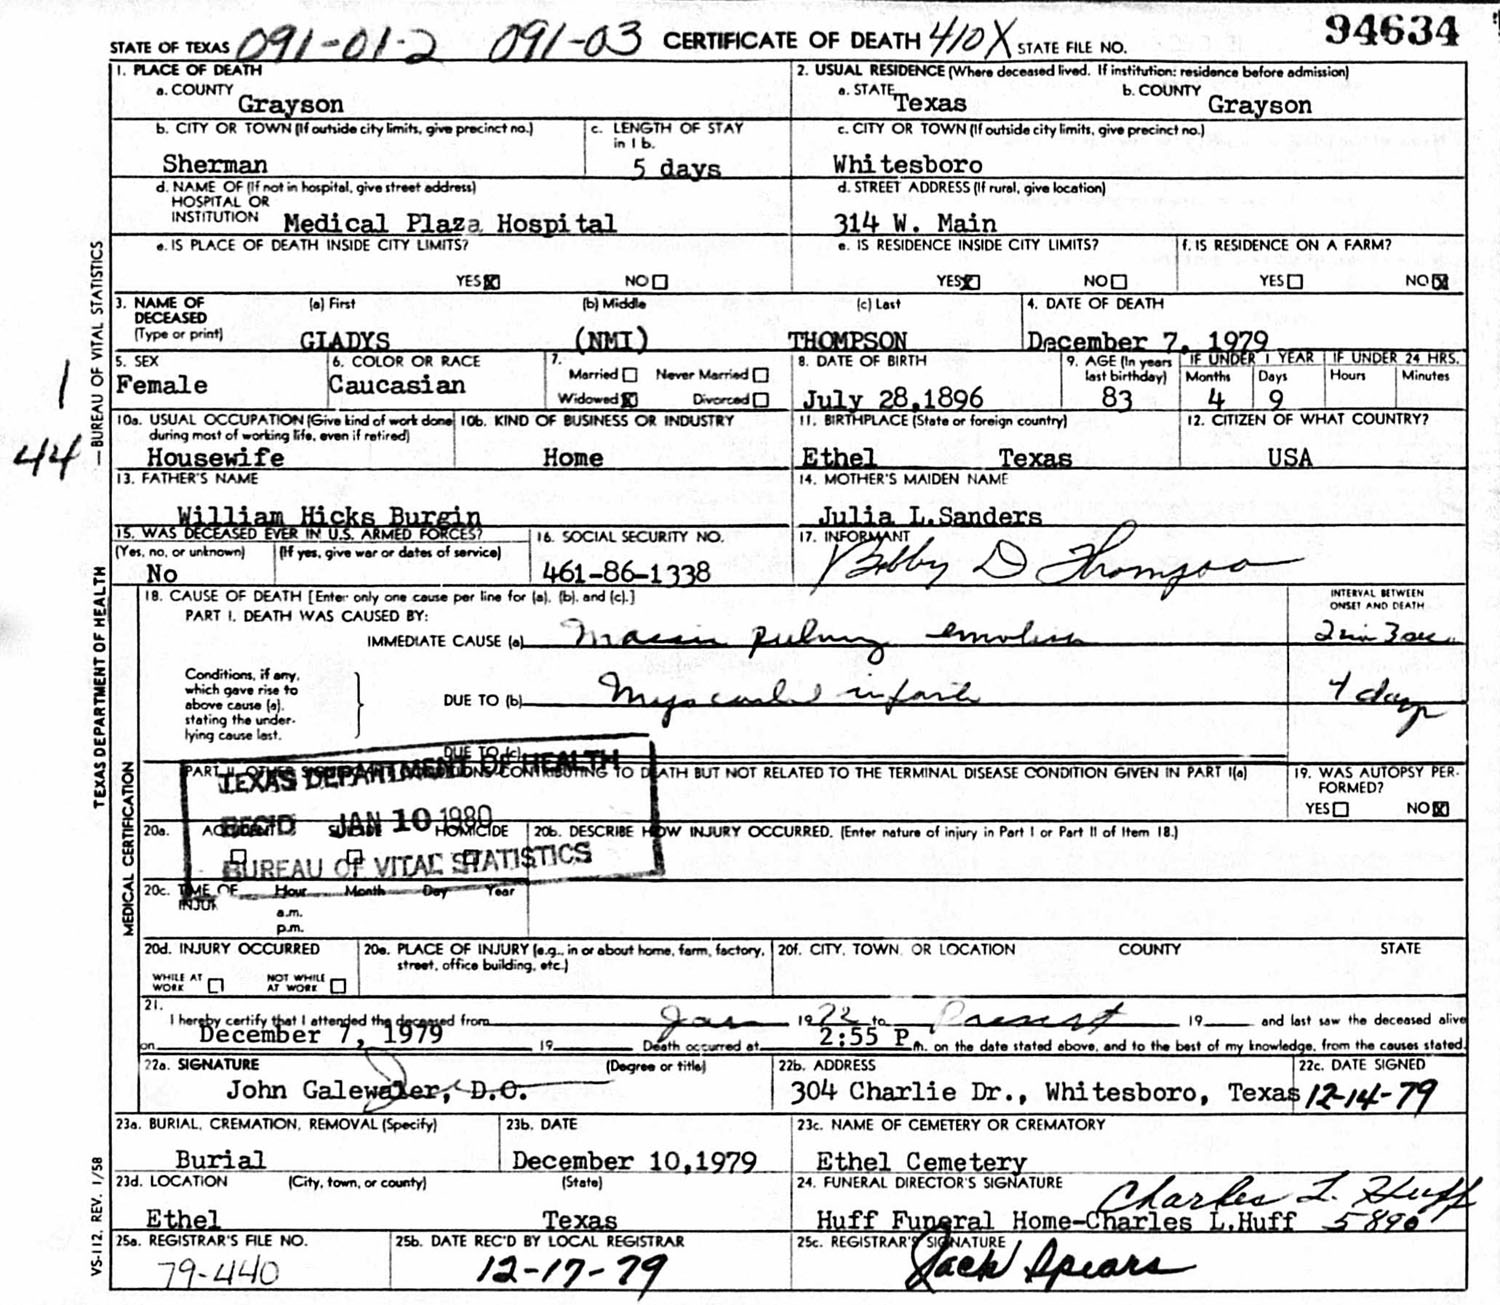 STATE OF TEXAS 091-01-2 091-03 CERTIFICATE OF DEATH 410X STATE FILE NO. 94634
1. PLACE OF DEATH
a. COUNTY Grayson
2. USUAL RESIDENCE (Where deceased lived. If institution: residence before admission)
a. STATE Texas b. COUNTY Grayson
b. CITY OR TOWN (If outside city limits, give precinct no.) Sherman
c. LENGTH OF STAY in 1 b. 5 days
c. CITY OR TOWN (If outside city limits, give precinct no.) Whitesboro
d. NAME OF (If not in hospital, give street address)
HOSPITAL OR
INSTITUTION Medical Plaza Hospital
d. STREET ADDRESS (If rural, give location)
314 W. Main
e. IS PLACE OF DEATH INSIDE CITY LIMITS?
YES NO
e. IS RESIDENCE INSIDE CITY LIMITS?
YES NO
f. IS RESIDENCE ON A FARM?
YES NO
3. NAME OF DECEASED (Type or print)
(a) First (b) Middle (c) Last
GLADYS (NMI) THOMPSON
4. DATE OF DEATH
December 7, 1979
5. SEX
Female
6. COLOR OR RACE
Caucasian
7.
Married Never Married
Widowed Divorced
8. DATE OF BIRTH
July 28,1896
9. AGE (In years last birthday)
83
IF UNDER 1 YEAR IF UNDER 24 HRS.
Months Days Hours Minutes
4 9
10a. USUAL OCCUPATION (Give kind of work done during most of working life, even if retired)
Housewife
10b. KIND OF BUSINESS OR INDUSTRY
Home
11. BIRTHPLACE (State or foreign country)
Ethel Texas
12. CITIZEN OF WHAT COUNTRY?
USA
13. FATHER'S NAME
William Hicks Burgin
14. MOTHER'S MAIDEN NAME
Julia L.Sanders
15. WAS DECEASED EVER IN U.S. ARMED FORCES?
(Yes, no, or unknown) (If yes, give war or dates of service)
No
16. SOCIAL SECURITY NO.
461-86-1338
17. INFORMANT
Bobby D Thompson
18. CAUSE OF DEATH [Enter only one cause per line for (a), (b), and (c).]
PART I. DEATH WAS CAUSED BY:
INTERVAL BETWEEN
ONSET AND DEATH
IMMEDIATE CAUSE (a)
Conditions, if any,
which gave rise to
above cause (a),
stating the under-
lying cause last.
DUE TO (b)
4 days
DUE TO (c)
PART II. OTHER SIGNIFICANT CONDITIONS CONTRIBUTING TO DEATH BUT NOT RELATED TO THE TERMINAL DISEASE CONDITION GIVEN IN PART I(a)
19. WAS AUTOPSY PER-
FORMED?
YES NO
TEXAS DEPARTMENT OF HEALTH
REC'D JAN 10 1980
BUREAU OF VITAL STATISTICS
20a. ACCIDENT SUICIDE HOMICIDE
20b. DESCRIBE HOW INJURY OCCURRED. (Enter nature of injury in Part I or Part II of Item 18.)
20c. TIME OF INJURY Hour Month Day Year
a.m.
p.m.
20d. INJURY OCCURRED
WHILE AT WORK NOT WHILE AT WORK
20e. PLACE OF INJURY (e.g., in or about home, farm, factory,
street, office building, etc.)
20f. CITY, TOWN, OR LOCATION COUNTY STATE
21.
I hereby certify that I attended the deceased from Jan 1972 to Present 19 and last saw the deceased alive
on December 7, 1979 19 Death occurred at 2:55 P.m. on the date stated above, and to the best of my knowledge, from the causes stated.
22a. SIGNATURE (Degree or title)
John Galewaler, D.O.
22b. ADDRESS
304 Charlie Dr., Whitesboro, Texas
22c. DATE SIGNED
12-14-79
23a. BURIAL, CREMATION, REMOVAL (Specify)
Burial
23b. DATE
December 10,1979
23c. NAME OF CEMETERY OR CREMATORY
Ethel Cemetery
23d. LOCATION (City, town, or county) (State)
Ethel Texas
24. FUNERAL DIRECTOR'S SIGNATURE
Charles L. Huff
Huff Funeral Home-Charles L.Huff 5890
25a. REGISTRAR'S FILE NO.
79-440
25b. DATE REC'D BY LOCAL REGISTRAR
12-17-79
25c. REGISTRAR'S SIGNATURE
Jack Spears
1
44
TEXAS DEPARTMENT OF HEALTH —BUREAU OF VITAL STATISTICS
MEDICAL CERTIFICATION
VS-112, REV. 1/58